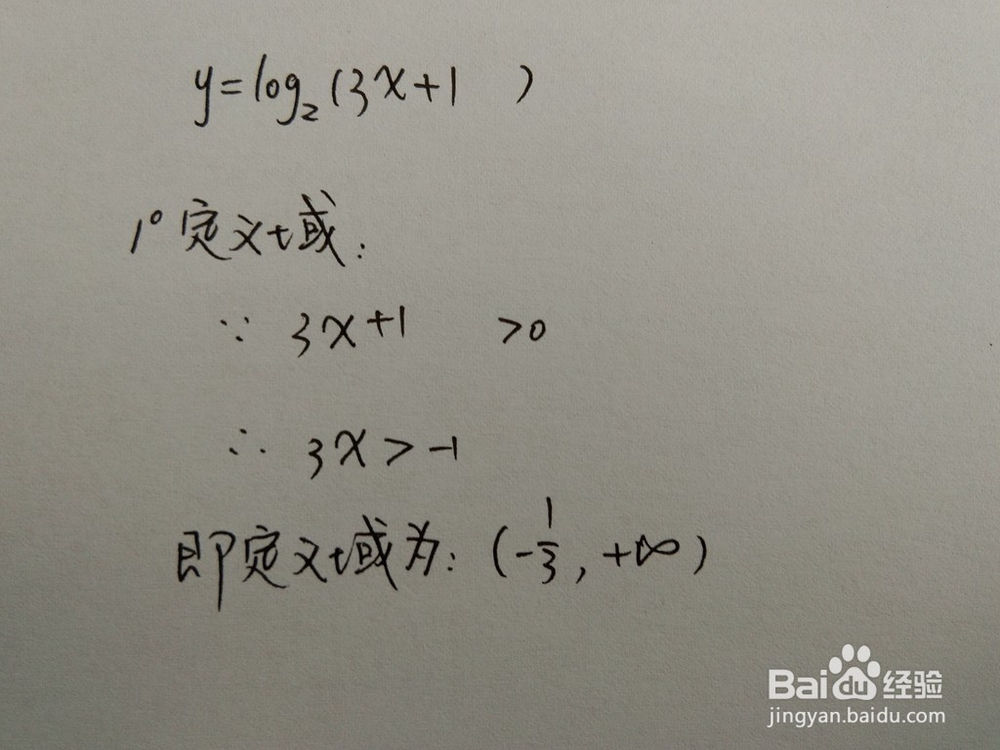 y=log₂(3x+1 )
1° 定义域:
∵ 3x+1 >0
∴ 3x>-1
即定义域为: (-1/3, +∞)
Baidu经验
jingyan.baidu.com